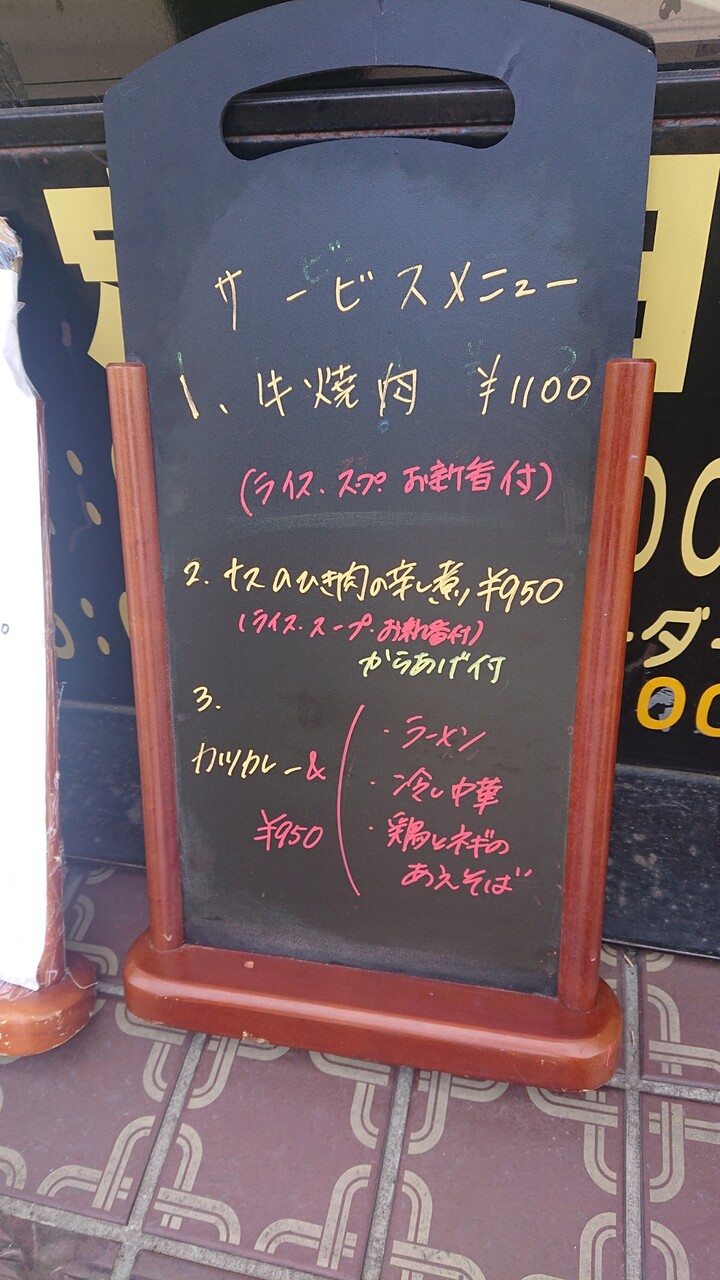 サービスメニュー
1、牛焼肉 ¥1100
(ライス、スープ お新香付)
2. ナスのひき肉の辛し煮 ¥950
(ライス・スープ・お新香付)
からあげ付
3.
カツカレー&
¥950
・ラーメン
・冷し中華
・鶏とネギの
あえそば